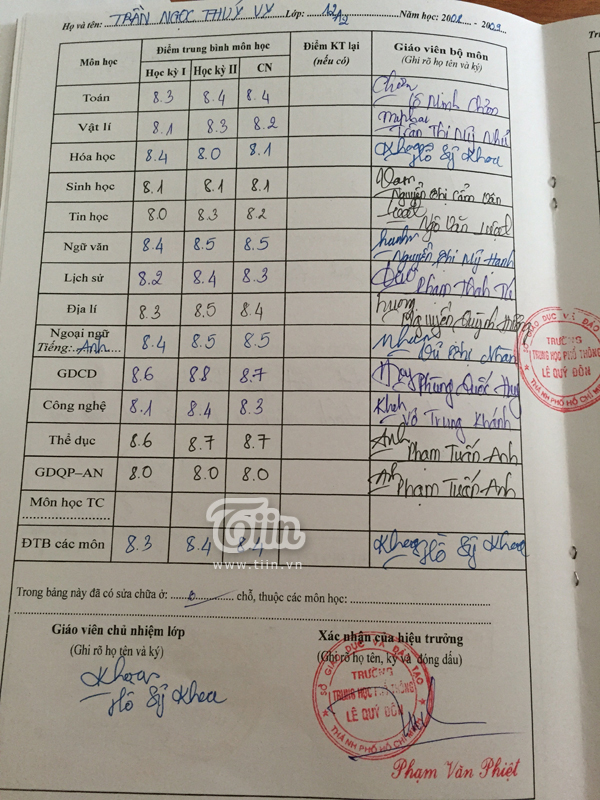 Họ và tên: TRẦN NGỌC THÚY VY Lớp: 12A2 Năm học: 2008 - 2009
Môn học Điểm trung bình môn học Điểm KT lại (nếu có) Giáo viên bộ môn (Ghi rõ họ tên và ký)
Học kỳ I Học kỳ II CN
Toán 8.3 8.4 8.4 Lê Minh
Vật lí 8.1 8.3 8.2 Trần Thị Mỹ Như
Hóa học 8.4 8.0 8.1 Khoa Hồ Sỹ Khoa
Sinh học 8.1 8.1 8.1 Nguyễn Thị Cẩm Vân
Tin học 8.0 8.3 8.2 Ngô Văn Luyệt
Ngữ văn 8.4 8.5 8.5 hanh Nguyễn Thị Mỹ Hạnh
Lịch sử 8.2 8.4 8.3 Phạm Thanh
Địa lí 8.3 8.5 8.4 hương Nguyễn Quỳnh Hương
Ngoại ngữ
Tiếng: Anh 8.4 8.5 8.5 Nhan Thị Nhan
GDCD 8.6 8.8 8.7 Huy Phùng Quốc Huy
Công nghệ 8.1 8.4 8.3 Khánh Võ Trung Khánh
Thể dục 8.6 8.7 8.7 Anh Phạm Tuấn Anh
GDQP–AN 8.0 8.0 8.0 Anh Phạm Tuấn Anh
Môn học TC
ĐTB các môn 8.3 8.4 8.4 Khoa Hồ Sỹ Khoa
Tiin
www.tiin.vn
Trong bảng này đã có sửa chữa ở: 0 chỗ, thuộc các môn học:
Giáo viên chủ nhiệm lớp
(Ghi rõ họ tên và ký)
Khoa
Hồ Sỹ Khoa
Xác nhận của hiệu trưởng
(Ghi rõ họ tên, ký và đóng dấu)
SỞ GIÁO DỤC VÀ ĐÀO TẠO
TRƯỜNG
TRUNG HỌC PHỔ THÔNG
LÊ QUÝ ĐÔN
THÀNH PHỐ HỒ CHÍ MINH
Phạm Văn Phiệt
SỞ GIÁO DỤC VÀ ĐÀO
TRƯỜNG
TRUNG HỌC PHỔ THÔNG
LÊ QUÝ ĐÔN
THÀNH PHỐ HỒ CHÍ